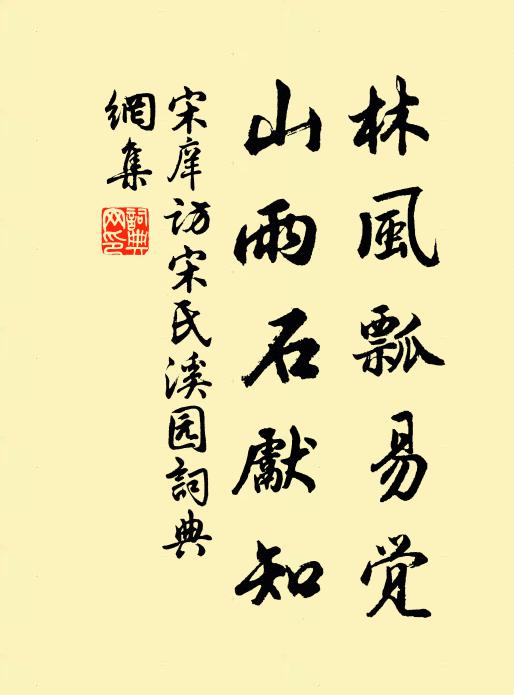 林風瓢易觉
山雨石獻知
宋庠访宋氏溪园詞典
網集
詞典
网印